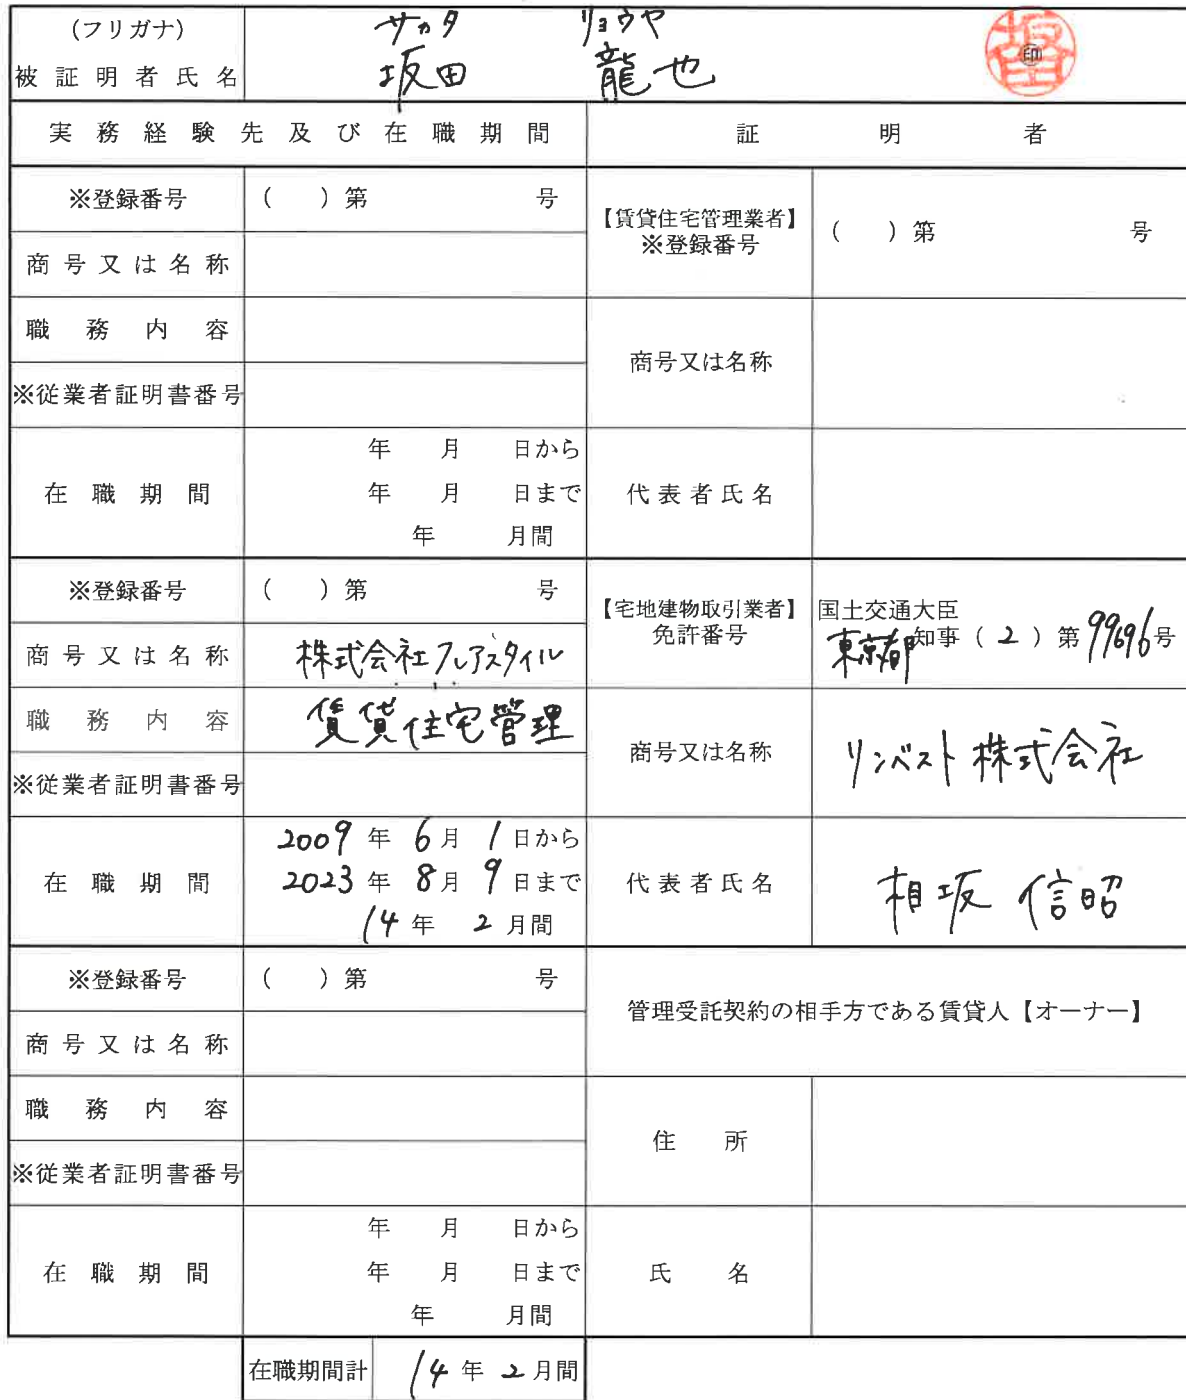 (フリガナ) サカタ リョウヤ
被証明者氏名 坂田 龍也 印
実務経験先及び在職期間 証明者
※登録番号 ( )第 号
商号又は名称
職務内容
※従業者証明書番号
在職期間
年 月 日から
年 月 日まで
年 月間
【賃貸住宅管理業者】
※登録番号
( )第 号
商号又は名称
代表者氏名
※登録番号 ( )第 号
商号又は名称 株式会社フレアスタイル
職務内容 賃貸住宅管理
※従業者証明書番号
在職期間
2009年 6月 1日から
2023年 8月 9日まで
14年 2月間
【宅地建物取引業者】
免許番号
国土交通大臣
東京都知事(2)第99696号
商号又は名称 リンベスト株式会社
代表者氏名 相坂 信昭
※登録番号 ( )第 号
商号又は名称
職務内容
※従業者証明書番号
在職期間
年 月 日から
年 月 日まで
年 月間
管理受託契約の相手方である賃貸人【オーナー】
住所
氏名
在職期間計 14年 2月間